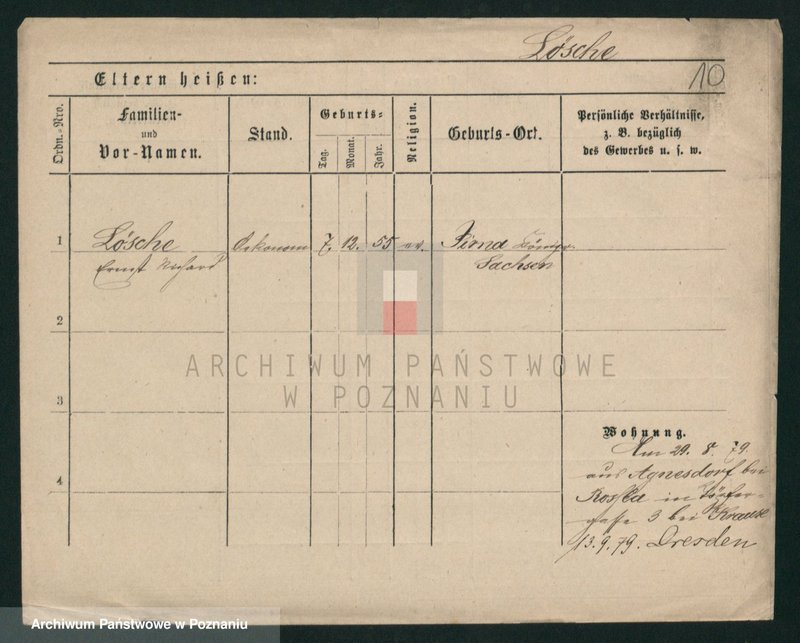 Lösche
10
Eltern heißen:
Ordn.-Nro.
Familien-
und
Vor-Namen.
Stand.
Geburts-
Tag.
Monat.
Jahr.
Religion.
Geburts-Ort.
Persönliche Verhältnisse,
z. B. bezüglich
des Gewerbes u. s. w.
1
Lösche
Ernst Richard
Oekonom
7.
12.
55
ev.
Pirna Königr.
Sachsen
2
3
4
ARCHIWUM PAŃSTWOWE
W POZNANIU
Wohnung.
Am 29. 8. 79.
aus Agnesdorf bei
Rossla in
gasse 3 bei Krause
13. 9. 79. Dresden
Archiwum Państwowe w Poznaniu